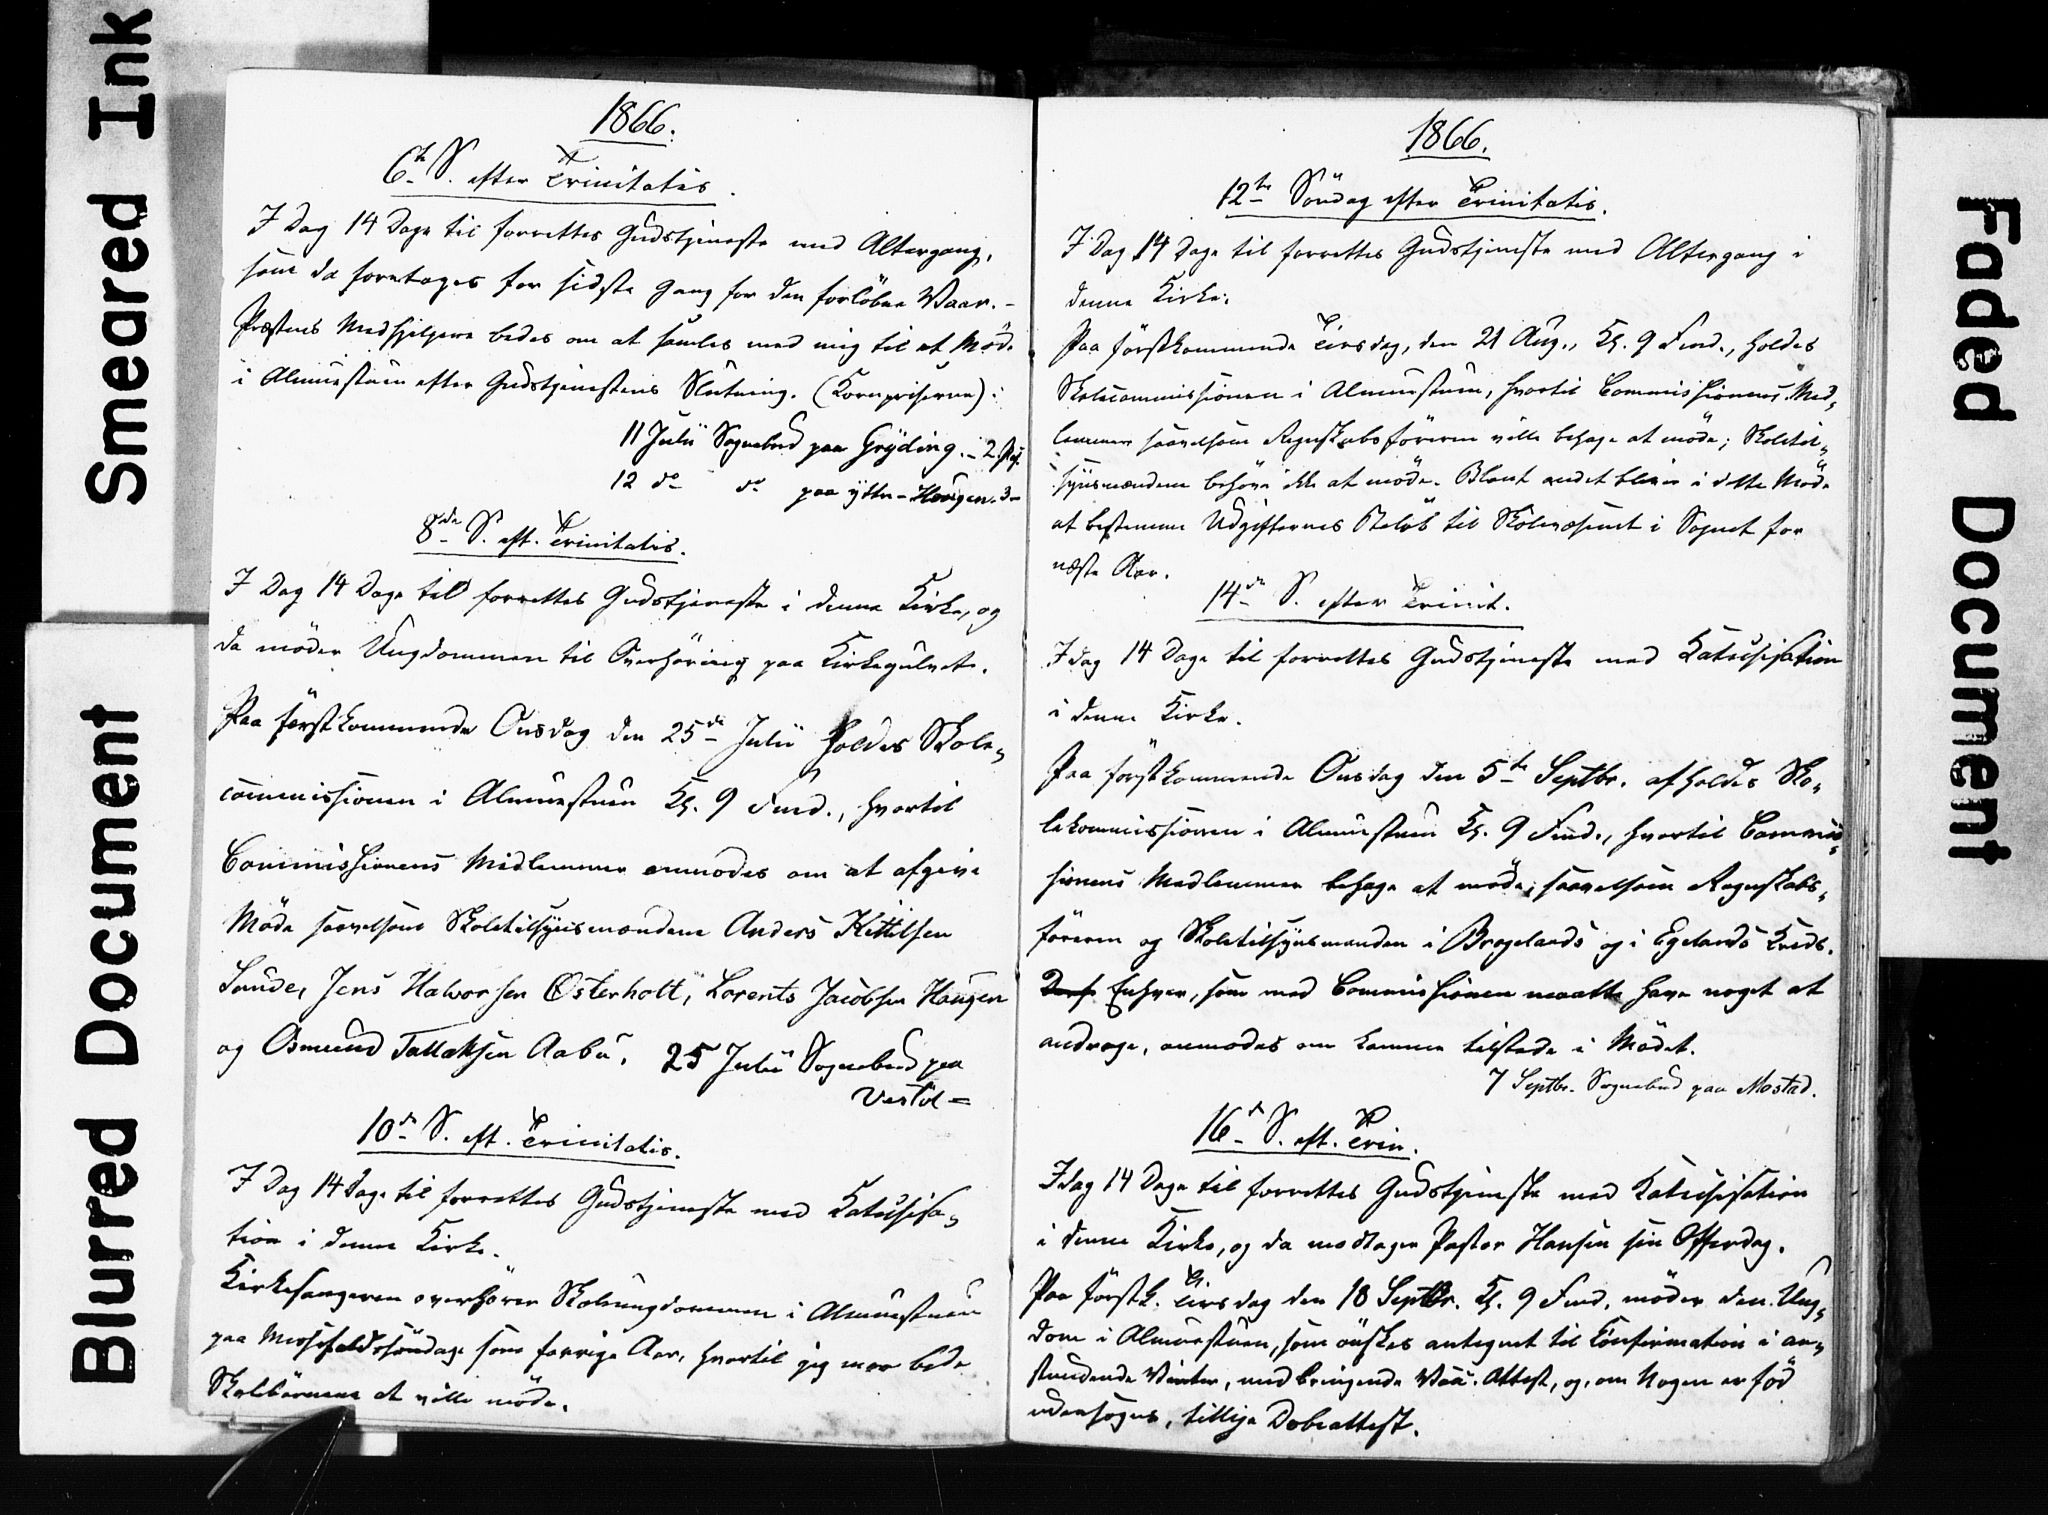 1866.
6te S. efter Trinitatis.
I Dag 14 Dage til forrettes Gudstjeneste med Altergang,
som da foretages for sidste Gang for den forløbne Vaar. –
Præstens Medhjelpere bedes om at samles med mig til et Møde
i Almuestuen efter Gudstjenestens Slutning. (Kornpriserne):
11 Julii Sognebud paa Gryding. – 2
12 do do paa Ytre-Hougen. 3 –
8de S. eft. Trinitatis.
I Dag 14 Dage til forrettes Gudstjeneste i denne Kirke, og
da møder Ungdommen til Overhøring paa Kirkegulvet.
Paa førstkommende Onsdag den 25de Julii holdes Skole-
commissionen i Almuestuen Kl. 9 Fmd., hvortil
Commissionens Medlemmer anmodes om at afgive
Møde saavelsom Skoletilsynsmændene Anders Kittilsen
Sunde, Jens Halvorsen Østerholt, Lorents Jacobsen Hougen
og Osmund Tallaksen Aabu. 25 Julii Sognebud paa
Vestøl =
10de S. eft. Trinitatis.
I Dag 14 Dage til forrettes Gudstjeneste med Katechisa-
tion i denne Kirke.
Kirkesangeren overhører Skoleungdommen i Almuestuen
paa Messefaldssøndage som forrige Aar, hvortil jeg maa bede
Skolebørnene at ville møde.
1866.
12te Søndag efter Trinitatis.
I Dag 14 Dage til forrettes Gudstjeneste med Altergang i
denne Kirke.
Paa førstkommende Tirsdag, den 21 Aug., Kl. 9 Fmd., holdes
Skolecommissionen i Almuestuen, hvortil Commissionens Med-
lemmer saavelsom Regnskabsføreren ville behage at møde; Skoletil-
synsmændene behøve ikke at møde. Blant andet bliver i dette Møde
at bestemme Udgifternes Beløb til Skolevæsenet i Sognet for
næste Aar.
14de S. efter Trinit.
Idag 14 Dage til forrettes Gudstjeneste med Katechisation
i denne Kirke.
Paa førstkommende Onsdag den 5te Septbr. afholdes Sko-
lekommissionen i Almuestuen Kl. 9 Fmd., hvortil Commis-
sionens Medlemmer behage at møde, saavelsom Regnskabs-
føreren og Skoletilsynsmanden i Brogelands og i Egelands Kreds.
Enhver, som med Commissionen maatte have noget at
andrage, anmodes om komme tilstede i Mødet.
7 Septbr. Sognebud paa Mostad.
16de S. eft. Trin.
Idag 14 Dage til forrettes Gudstjeneste med Katechisation
i denne Kirke, og da modtager Pastor Hansen sin Offerdag.
Paa førstk. Tirsdag den 18 Septbr. Kl. 9 Fmd. møder den Ung-
dom i Almuestuen, som ønskes antegnet til Confirmation i an-
stundende Vinter, medbringende Vac. Attest, og, om Nogen er fød
udensogns, tillige Døbeattest.
Smeared Ink
Blurred Document
Faded Document